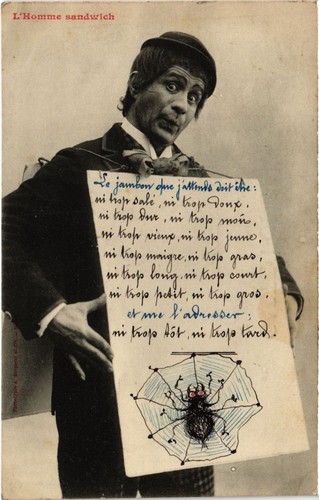 L'Homme sandwich
Le jambon que j'attends doit être :
ni trop salé, ni trop doux,
ni trop dur, ni trop moû,
ni trop vieux, ni trop jeune,
ni trop maigre, ni trop gras,
ni trop long, ni trop court,
ni trop petit, ni trop gros.
et me l'adresser :
ni trop tôt, ni trop tard.